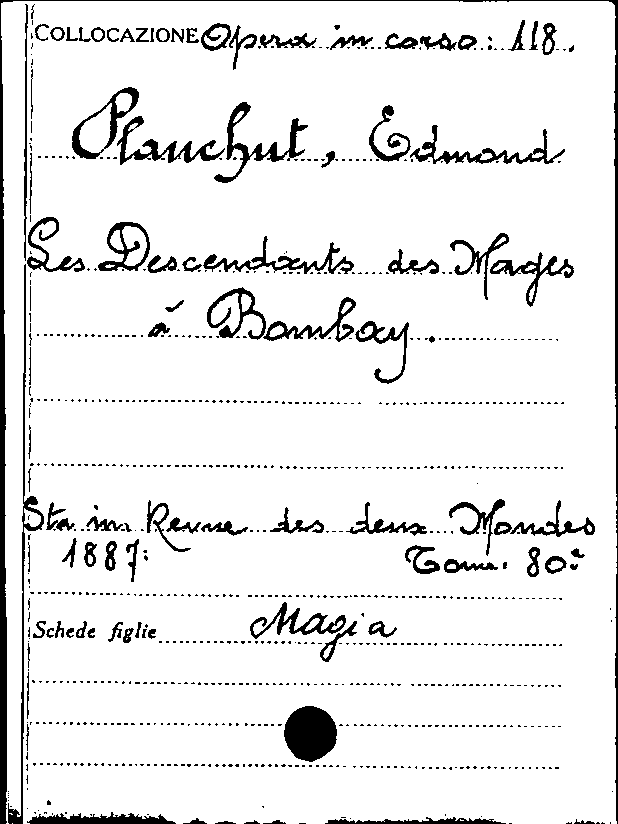 COLLOCAZIONE Opera in corso: 118.
Plauchut, Edmond
Les Descendants des Mages
à Bombay.
Sta in Revue des deux Mondes
1887: Tome. 80º
Schede figlie Magia